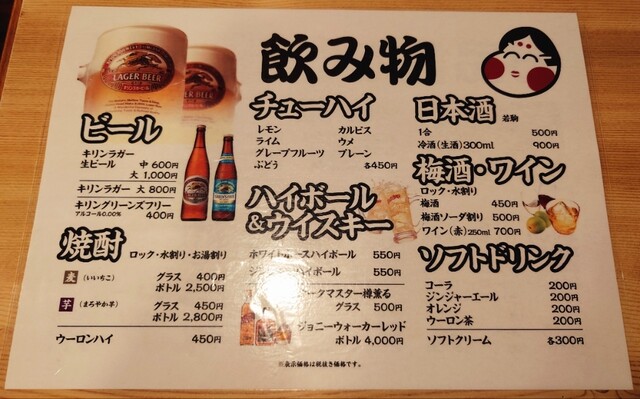 飲み物
LAGER BEER
LAGER BEER
ビール
キリンラガー
生ビール 中 600円
大 1,000円
キリンラガー 大 800円
キリングリーンズフリー
アルコール0.00% 400円
焼酎 ロック・水割り・お湯割り
麦 (いいちこ) グラス 400円
ボトル 2,500円
芋 (まろやか芋) グラス 450円
ボトル 2,800円
ウーロンハイ 450円
チューハイ
レモン カルピス
ライム ウメ
グレープフルーツ プレーン
ぶどう 各450円
ハイボール
&ウイスキー
ホワイトホースハイボール 550円
ハイボール 550円
マスター樽薫る
グラス 500円
ジョニーウォーカーレッド
ボトル 4,000円
日本酒 若駒
1合 500円
冷酒(生酒)300ml 900円
梅酒・ワイン
ロック・水割り
梅酒 450円
梅酒ソーダ割り 500円
ワイン(赤)250ml 700円
ソフトドリンク
コーラ 200円
ジンジャーエール 200円
オレンジ 200円
ウーロン茶 200円
ソフトクリーム 各300円
※表示価格は税抜き価格です。